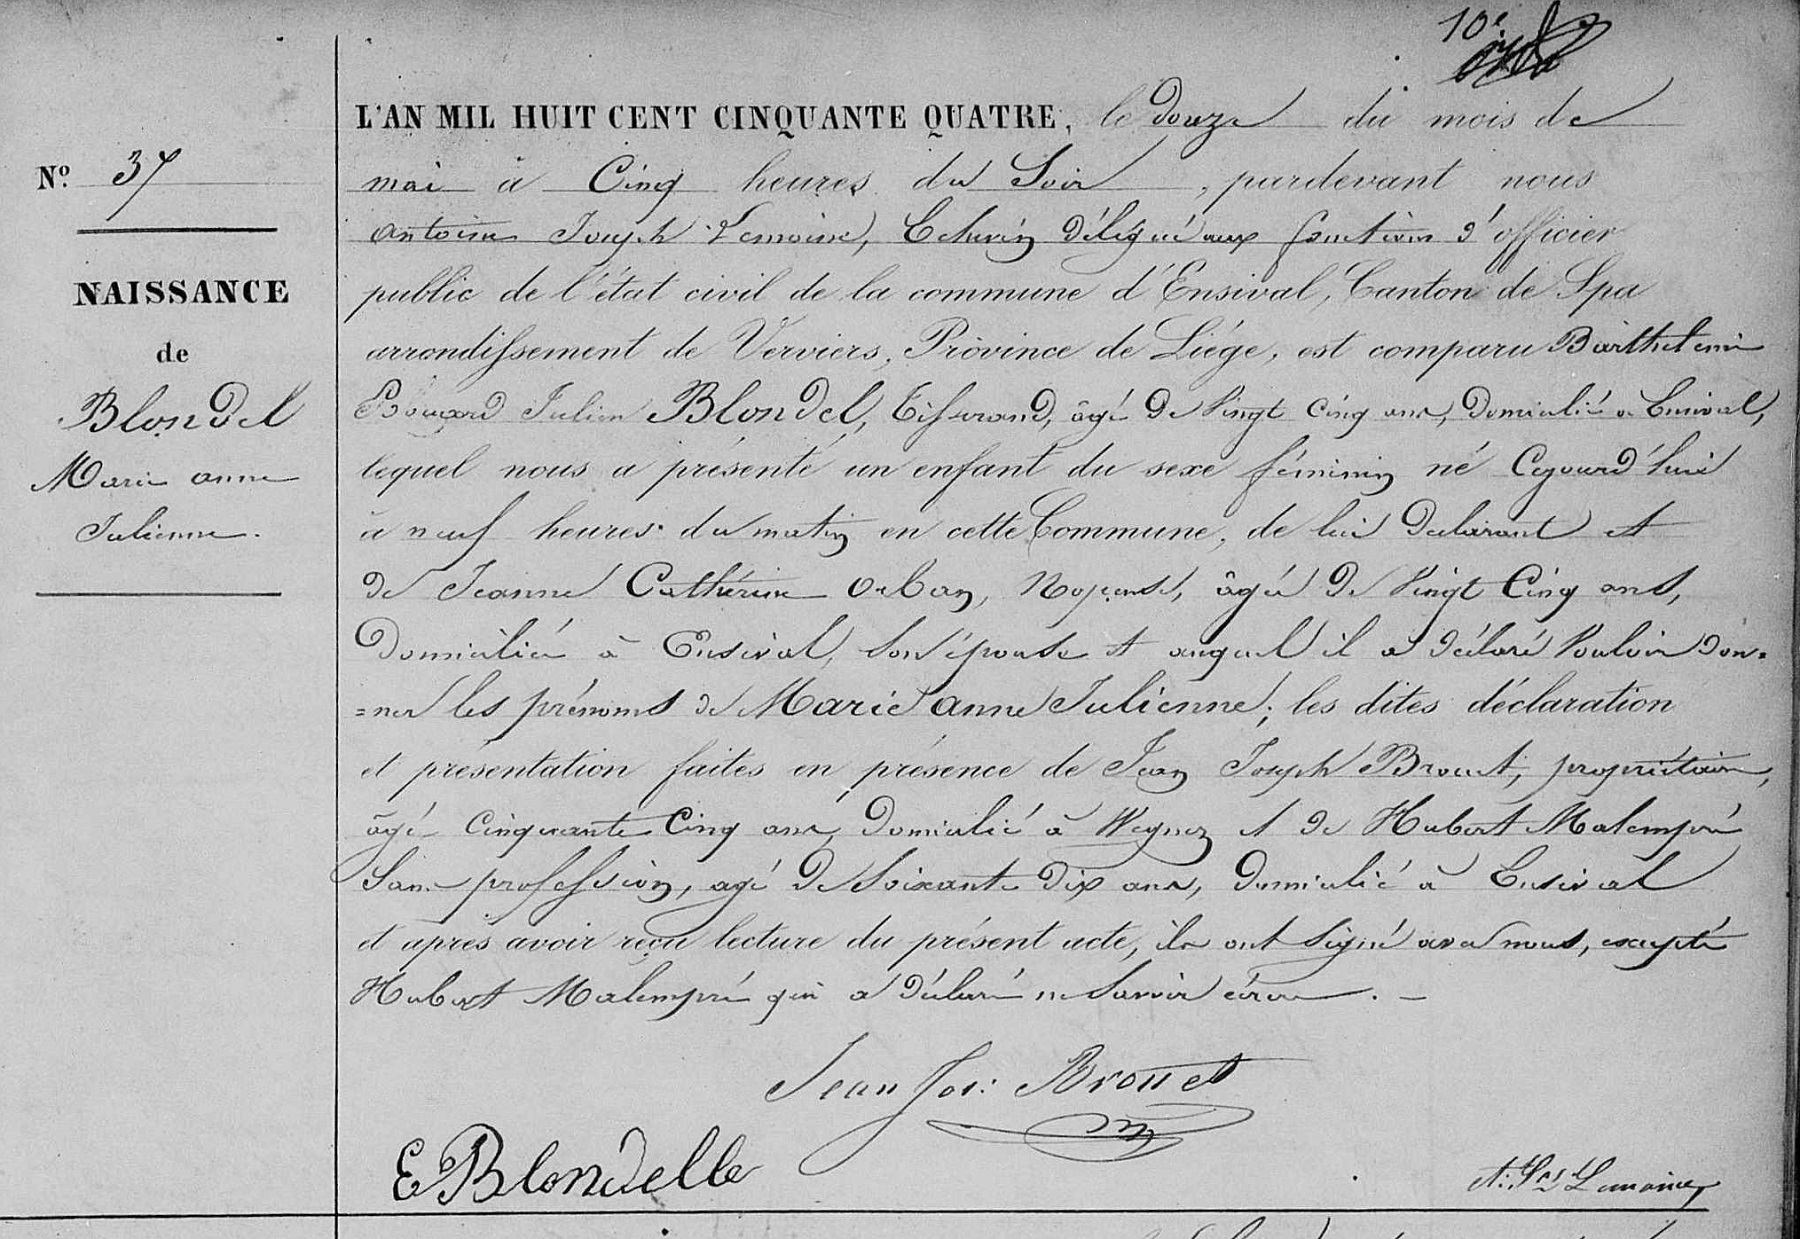 10e
L'AN MIL HUIT CENT CINQUANTE QUATRE, le douze du mois de
No 37
mai à Cinq heures du Soir, pardevant nous
antoine Joseph Lemoine, Echevin délégué aux fonctions d'officier
public de l'état civil de la commune d'Ensival, Canton de Spa
NAISSANCE
de
Blondel
Marie anne
Julienne.
arrondissement de Verviers, Province de Liége, est comparu Barthelemi
Edouard Julien Blondel, Tisserand, âgé de Vingt cinq ans, Domicilié a Ensival,
lequel nous a présenté un enfant du sexe féminin né Cejourd'hui
à neuf heures du matin en cette Commune, de lui declarant et
de Jeanne Cathérine Orban, Nopeuse, âgée de Vingt Cinq ans,
Domiciliée à Ensival, son épouse et auquel il a déclaré Vouloir don=
=ner les prénoms de Marie anne Julienne; les dites déclaration
et présentation faites en présence de Jean Joseph Brouet, propriétaire,
âgé Cinquante Cinq ans, Domicilié à Wegnez et de Hubert Malempré
Sans profession, agé de Soixante Dix ans, Domicilié à Ensival
et après avoir reçu lecture du présent acte, ils ont Signé avec nous, excepté
Hubert Malempré qui a déclaré ne Savoir écrire. –
Jean Jos: Brouet
E Blondelle
A: Jos Lemoine